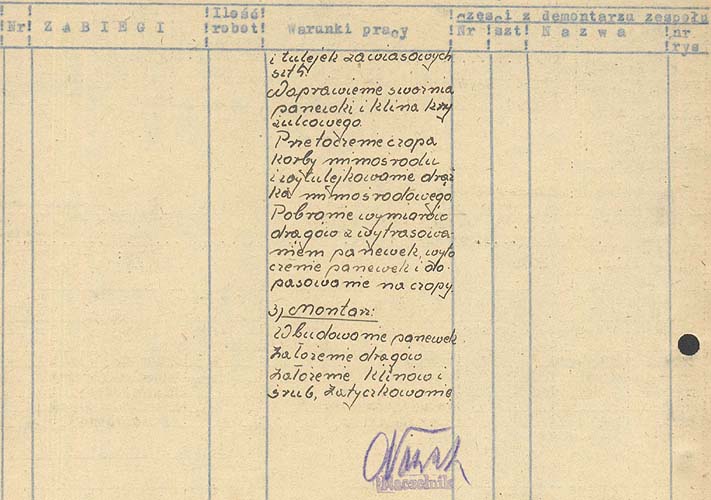 Nr
Z A B I E G I
Ilość
robot
Warunki pracy
części z demontarzu zespołu
Nr
szt
N a z w a
nr
rys
i tulejek zawiasowych
szt 5.
Naprawienie sworznia
panewki i klina krzy
żulcowego.
Przetoczenie czopa
korby mimosrodu
i wytulejkowanie drąż
ka mimośrodowego
Pobranie wymiarów
drągów z wytrasowa-
niem panewek, wyto
czenie panewek i do-
pasowanie na czopy.
3) Montarz:
Wbudowanie panewek
Założenie drągów
Założenie klinów i
śrub, Zatyczkowanie
Nowak
Naczelnik